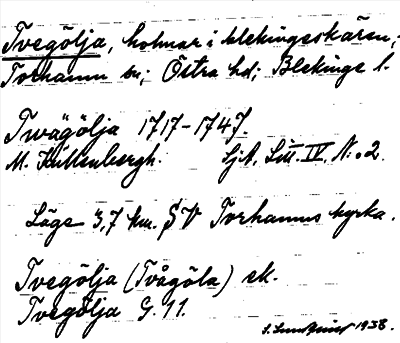 Tvegölja, holmar i blekingeskären;
Torhamn sn; Östra hd; Blekinge l.
Twägölja 1717-1747.
M. Kullenbergh. SjA, Litt. IV, N:o 2.
Läge 3,7 km. SV Torhamns kyrka.
Tvegölja (Tvågöla) ek.
Tvegölja G. 11.
1938.